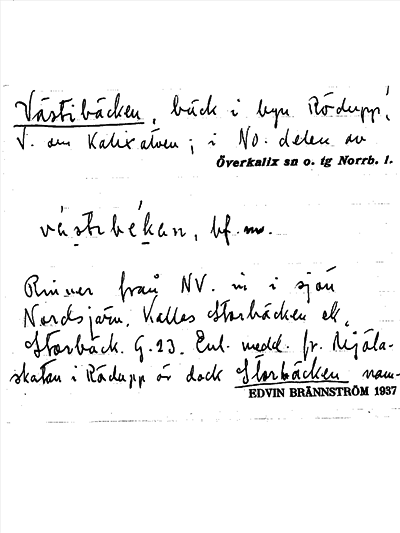 Västibäcken, bäck i byn Rödupp,
V. om Kalixälven; i No. delen av
Överkalix sn o. tg Norrb. l.
västɩbékan, bf. m.
Rinner från NV. in i sjön
Nordsjärn. Kallas Storbäcken el.
Storbäck. G.23. Enl. medd. fr.
skatan i Rödupp är dock Storbäcken nam-
EDVIN BRÄNNSTRÖM 1937